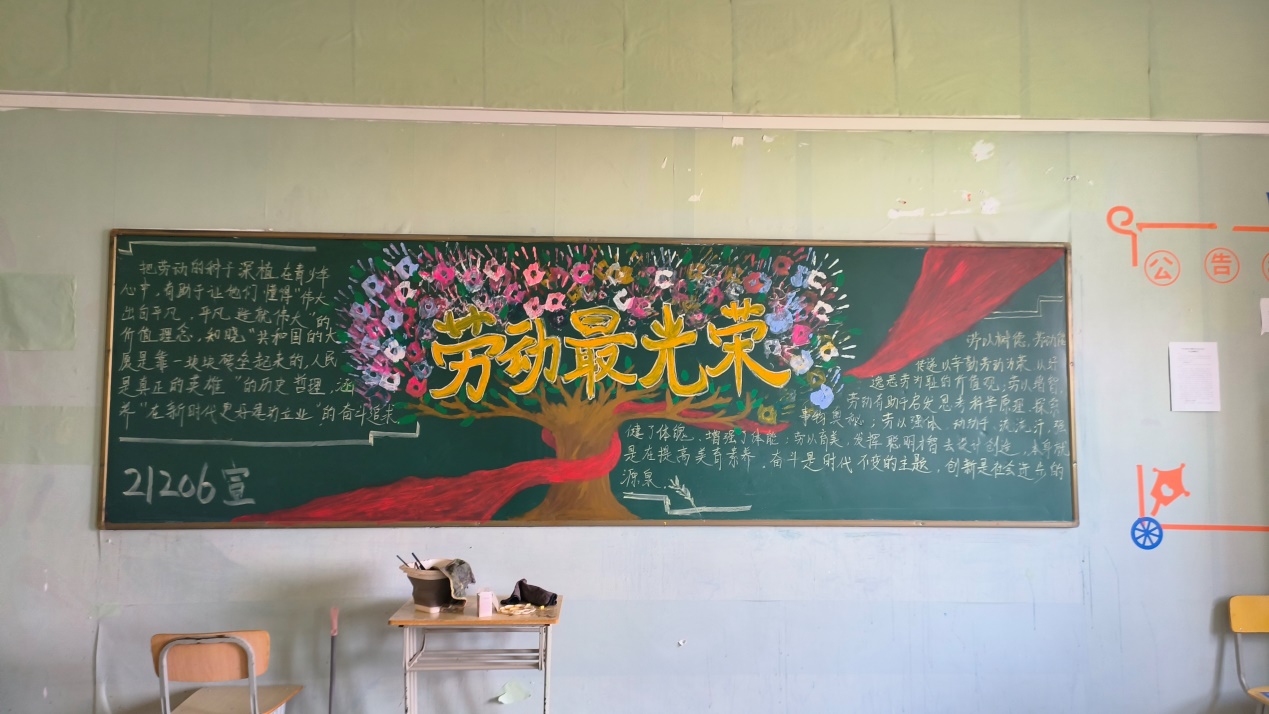 把劳动的种子深植在青少年
心中，有助于让他们懂得“伟大
出自平凡，平凡造就伟大”的
价值理念，知晓“共和国的大
厦是靠一块块砖垒起来的，人民
是真正的英雄”的历史哲理，涵
养“在新时代更好建功立业”的奋斗追求
21206宣
劳动最光荣
劳以树德，劳动能
传递以辛勤劳动为荣，以好
逸恶劳为耻的价值观；劳以增智，
劳动有助于启发思考科学原理、探索
事物奥秘；劳以强体，动动手、流流汗，强
健了体魄，增强了体能；劳以育美，发挥聪明才智去设计创造，本身就
是在提高美育素养。奋斗是时代不变的主题，创新是社会进步的
源泉。
公告